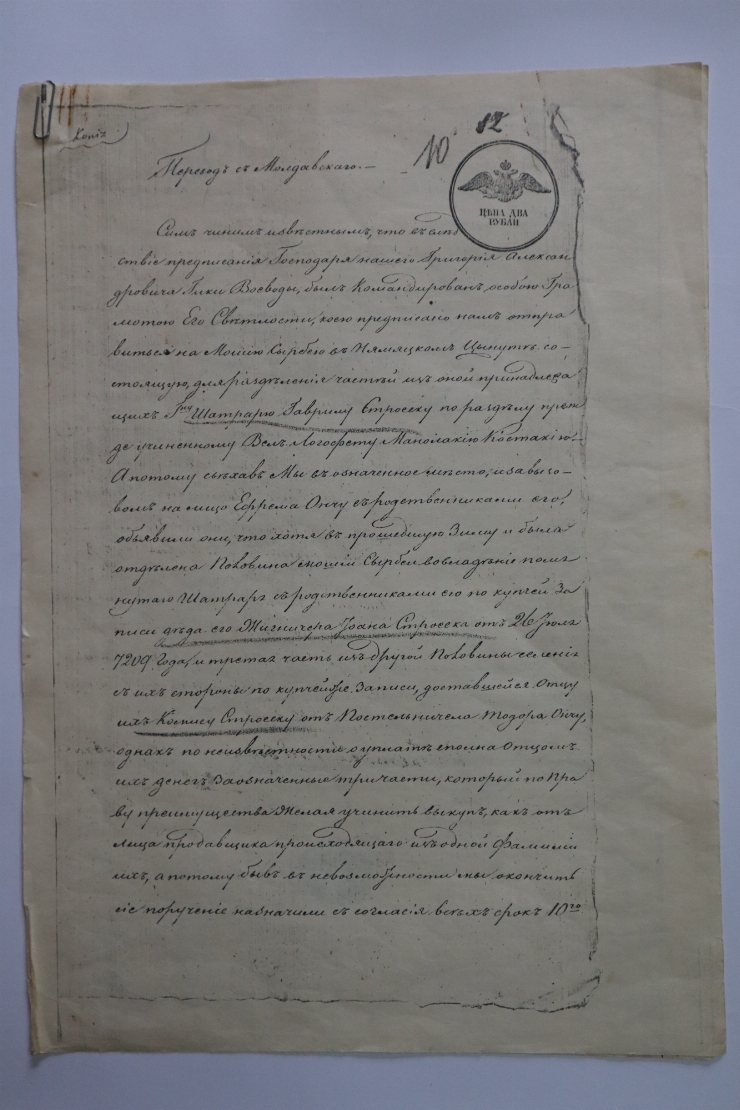 Копія
10 82
Переводъ съ Молдавскаго.—
ЦѢНА ДВА
РУБЛИ
Симъ чинимъ извѣстнымъ, что въ слѣд
ствіе предписанія Господаря нашего Григорія Алексан
дровича Гики Воеводы, былъ Командированъ, особою Гра
мотою Его Свѣтлости, коею предписано намъ отпра
виться на Мошію Сырбею въ Нямецкомъ Цынутѣ со-
стоящую, для раздѣленія частей изъ оной принадлежа
щихъ Гну Шатрарю Гаврилу Строеску по раздѣлу преж
де учиненному Вел. Логофету Манолакію Костакію.—
А потому съѣхавъ Мы въ означенное мѣсто, и за вызо-
вомъ на лицо Ефрема Ончу съ родственниками его,
объявили они, что хотя въ прошедшую Зиму и была
отдѣлена Половина мошіи Сырбей во владѣніе помя
нутаго Шатраря съ родственниками его по купчей За
писи дѣда его Житничера Іоана Строеска отъ 26 Іюля
7209 Года, и третая часть изъ другой Половины селенія
съ ихъ стороны по купчей же Записи, доставшейся Отцу
ихъ Костису Строеску отъ Постельничела Тодора Ончу,
однакъ по неизвѣстности о уплатѣ сполна Отцомъ
ихъ денегъ За означенные три части, который по Пра
ву преимущества Желая учинить выкупъ, какъ отъ
лица продавщика происходящаго изъ одной Фамиліи
ихъ, а потому бывъ въ невозможности мы окончить
сіе порученіе назначили съ согласія всѣхъ срокъ 10го